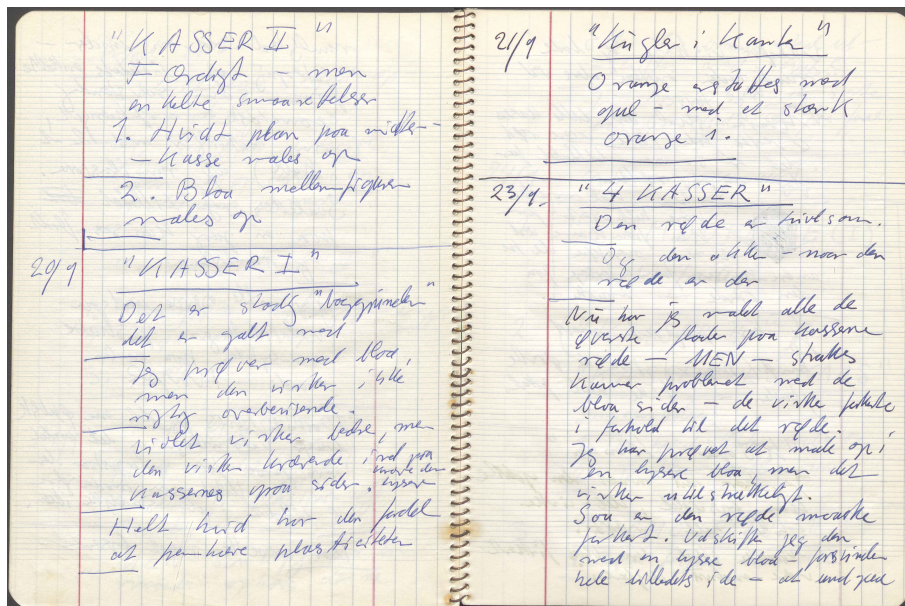 "KASSER II"
Færdigt – men
enkelte smaarettelser
1. Hvidt plan paa midter-
– kasse males op
2. Blaa mellemfigurer
males op
20/9 "KASSER I"
Det er stadig "baggrunden"
det er galt med
Jeg prøver med blaa,
men den virker ikke
rigtig overbevisende.
Violet virker bedre, men
den virker ind paa
Kassernes graa sider. lysere
Helt hvid har den fordel
at plasticiteten
21/9 "Kugler i Kanten"
Orange erstattes med
gul – med et stænk
orange i.
23/9. "4 KASSER"
Den røde er tvivlsom.
Og den okker – naar den
røde er der
Nu har jeg malet alle de
øverste flader paa Kasserne
røde – MEN – straks
kommer problemet med de
blaa sider – de virker forkerte
i forhold til det røde.
Jeg har prøvet at male op i
en lysere blaa, men det
virker utilstrækkeligt.
Saa er den røde maaske
forkert. Udskifter jeg den
med en lysere blaa – forsvinder
hele billedets ide – at